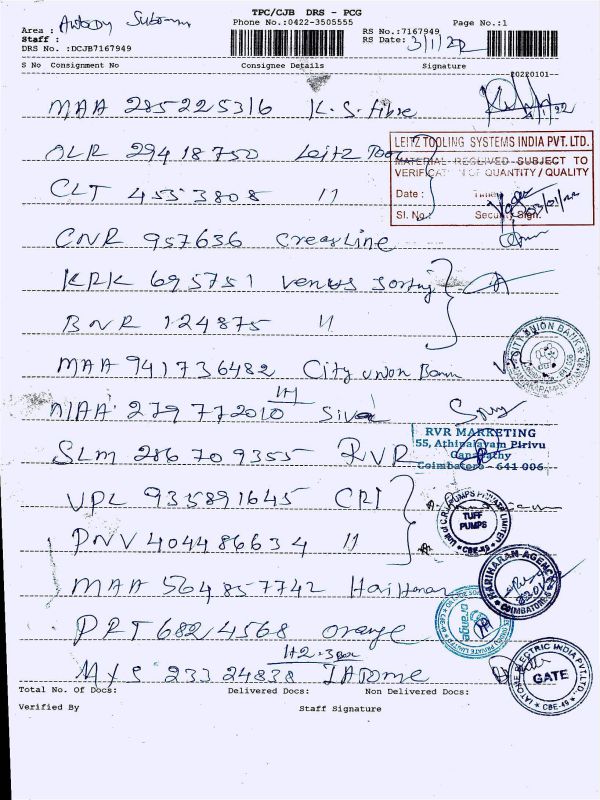 TPC/CJB DRS - PCG
Area : Phone No.:0422-3505555 Page No.:1
Staff : RS No.:7167949
DRS No. :DCJB7167949 RS Date: 3/1/22
S No Consignment No Consignee Details Signature
20220101--
MAA 285225316 K.S. fibre
LEITZ TOOLING SYSTEMS INDIA PVT. LTD.
OLR 29418750 Leitz Tool
MATERIAL RECEIVED SUBJECT TO
VERIFICATION OF QUANTITY / QUALITY
CLT 45533808 11
Date : Time
03/01/22
Sl. No.: Security Sign.
CNR 957636 Creasline
KRK 695751 Venus
BNR 124875 11
MAA 941736482 City union Bank
CITY UNION BANK
1+1
MAA 279772010 Siva
RVR MARKETING
SLM 286709355 RVR
55, Athipalayam Pirivu
Ganapathy
Coimbatore - 641 006
VPL 935891645 CRI
TUFF
PUMPS
CBE-49
PNV 404486634 11
MAA 564857742 Hariharan
HARIHARAN AGENCY
COIMBATORE-6
PRT 6824568 orange
orange
1+2=3 Box
MYS 23324838 IATOme
ELECTRIC INDIA PVT.LTD.
GATE
CBE-49
Total No. Of Docs: Delivered Docs: Non Delivered Docs:
Verified By Staff Signature